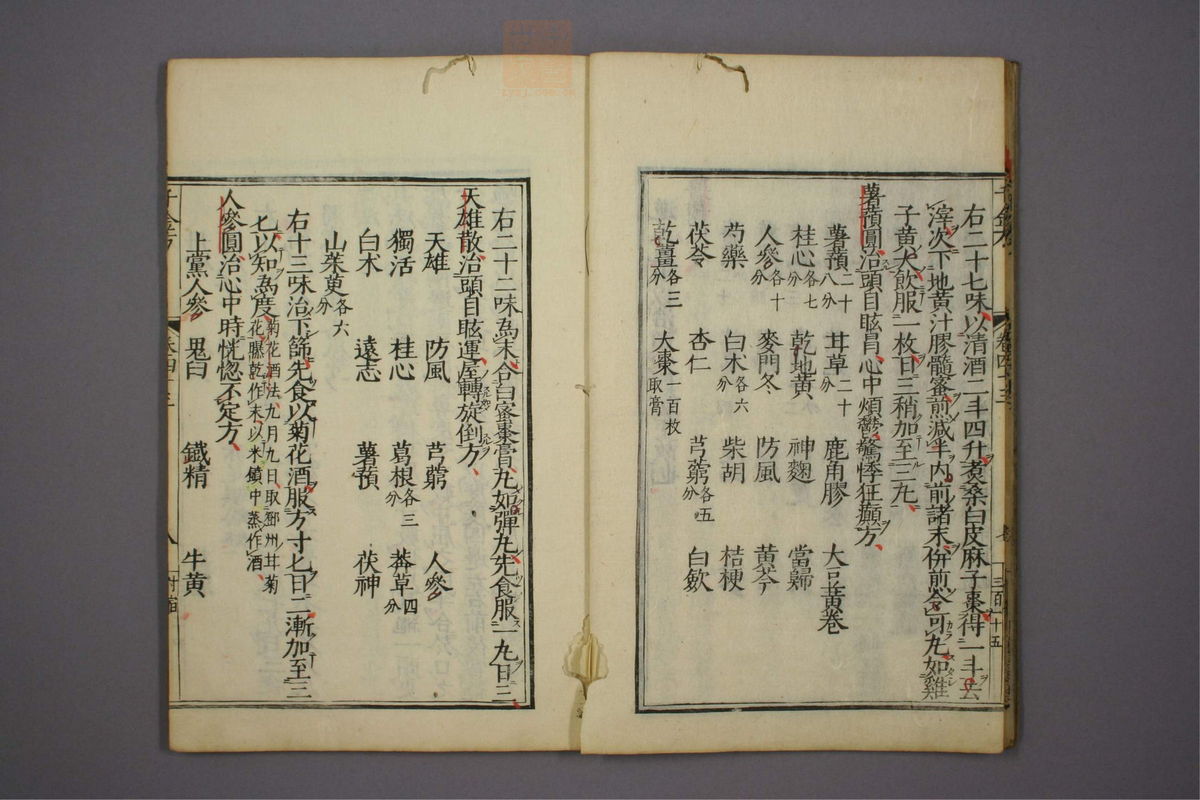 右二十七味以清酒二斗四升煮桑白皮麻子棗得一斗去
滓次下地黃汁膠髓蜜煎減半內前諸末併煎令可丸如雞
子黃大飲服一枚日三稍加至三丸
薯蕷圓治頭目眩冒心中煩鬱驚悸狂癲方
薯蕷二十八分 甘草二十分 鹿角膠 大豆黃卷
桂心各七分 乾地黃 神麴 當歸
人參各十分 麥門冬 防風 黃芩
芍藥 白朮各六分 柴胡 桔梗
茯苓 杏仁 芎藭各五分 白歛
乾薑各三分 大棗一百枚取膏
右二十二味為末合白蜜棗膏丸如彈丸先食服一丸日三
天雄散治頭目眩運屋轉旋倒方
天雄 防風 芎藭 人參
獨活 桂心 葛根各三分 莽草四分
白朮 遠志 薯蕷 茯神
山茱萸各六分
右十三味治下篩先食以菊花酒服方寸匕日二漸加至三
匕以知為度菊花酒法九月九日取鄧州甘菊花曝乾作末以米饙中蒸作酒
人參圓治心中時恍惚不定方
上黨人參 鬼臼 鐵精 牛黃
卷四十三
三百一十五